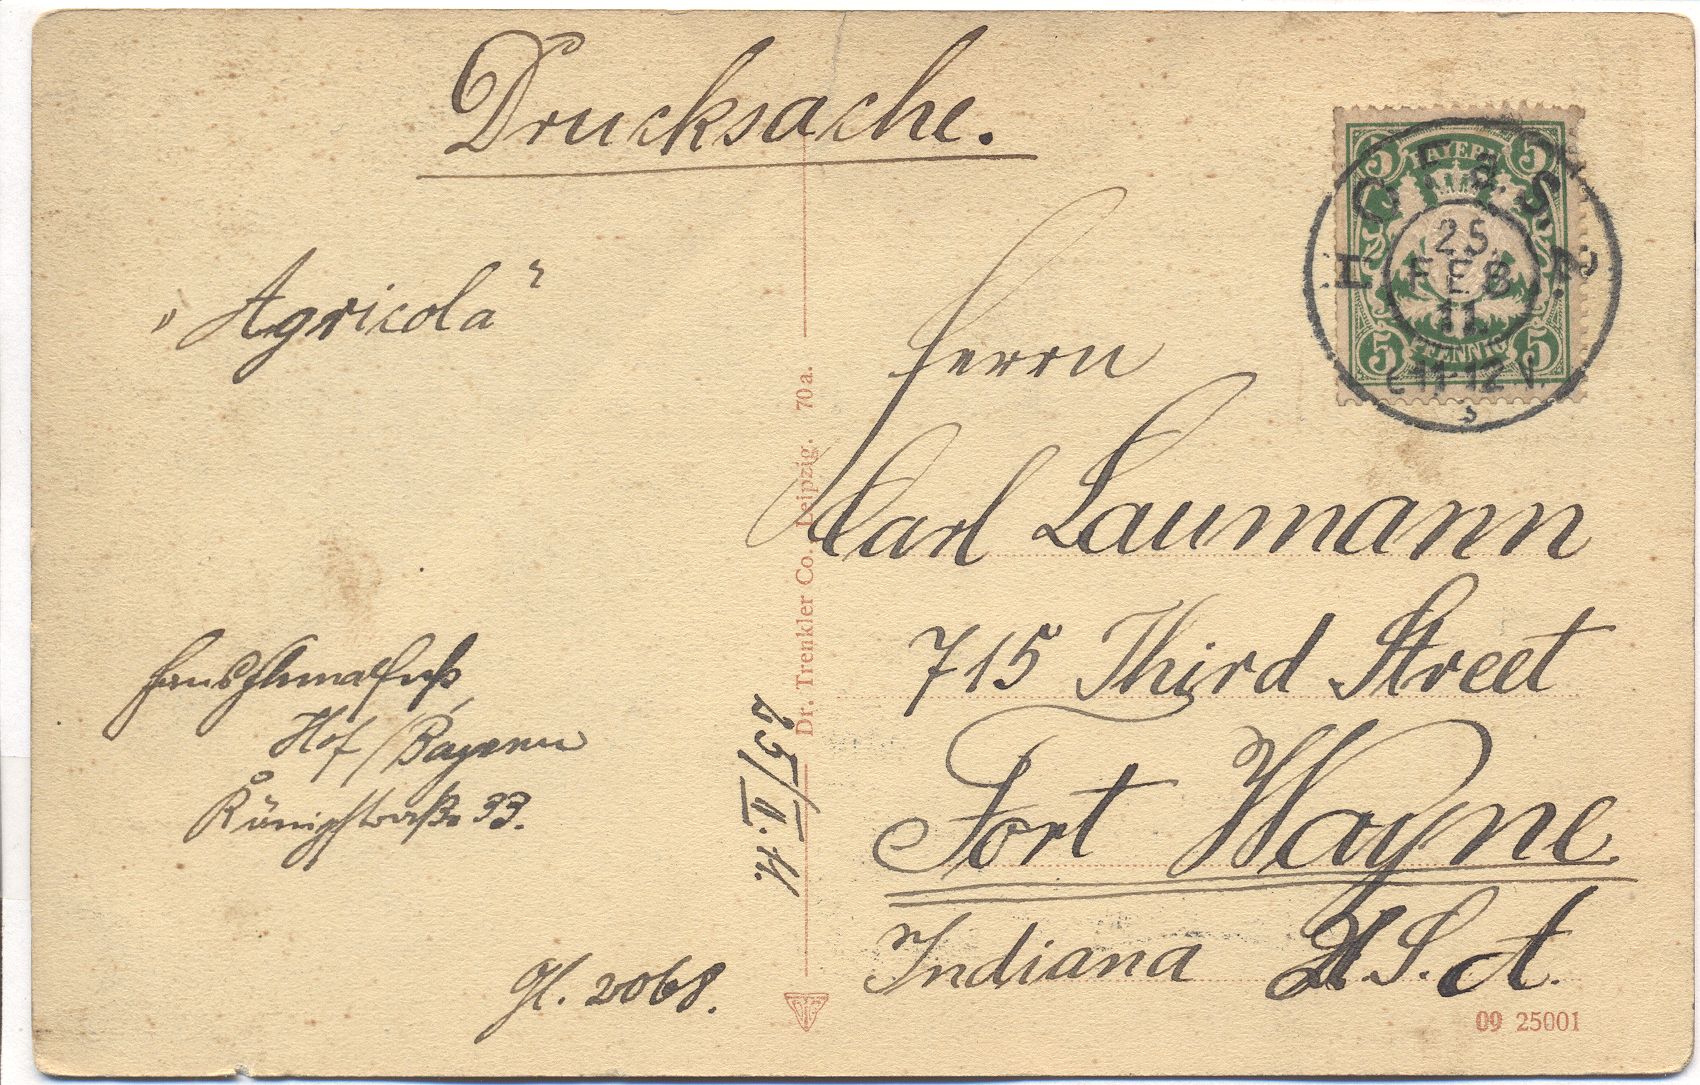 Drucksache.
BAYERN
5 5
HOF a. S. 2.
25.
FEB
11.
PFENNIG
5 5
11-12 V.
„Agricola“
Herrn
Carl Laumann
715 Third Street
Fort Wayne
Indiana U.S.A.
Hans
Hof / Bayern
33.
Gl. 2068.
25/II.11.
Dr. Trenkler Co. Leipzig. 70a.
09 25001